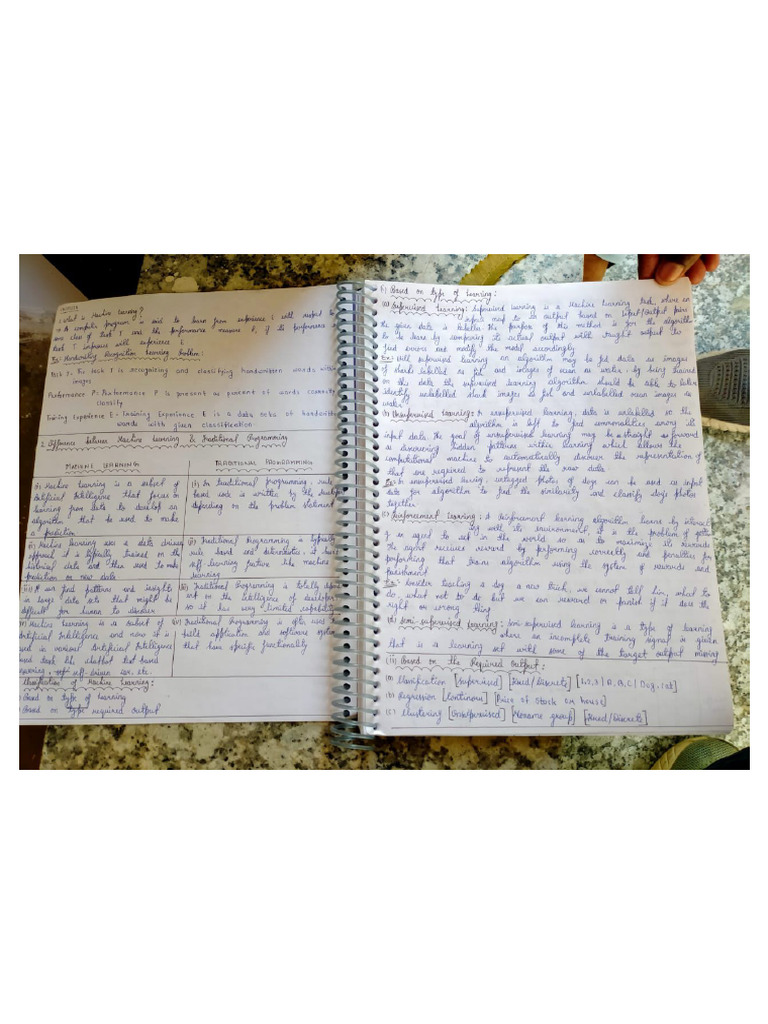 1. What is Machine Learning?
→ A computer program is said to learn from experience E with respect to
some class of task T and the performance measure P, if its performance
task T improves with experience E
Eg: Handwriting Recognition Learning Problem:
Task T- The task T is recognising and classifying handwritten words within
images
Performance P- Performance P is present as percent of words correctly
classify
Training Experience E- Training Experience E is a data sets of handwritten
words with given classification
2. Difference between Machine Learning & Traditional Programming
MACHINE LEARNING
(i) Machine Learning is a subset of
Artificial Intelligence that focus on
learning from data to develop an
algorithm that be used to make
a prediction
(ii) Machine Learning uses a data driven
approach it is typically trained on the
historical data and then used to make
prediction on new data
(iii) It can find patterns and insights
in large data sets that might be
difficult for human to discover
Machine Learning is a subset of
Artificial Intelligence and now it is
used in various Artificial Intelligence
used task like chatbot text based
learning, self-driven car, etc.
TRADITIONAL PROGRAMMING
(i) In traditional programming, rule
based code is written by the
depending on the problem statement
(ii) Traditional Programming is typically
rule based and deterministic, it
self-learning feature like machine
learning
(iii) Traditional Programming is totally
on the intelligence of
so it has very limited
(iv) Traditional Programming is often used
field application and software
that have specific functionality
Classification of Machine Learning:
Based on type of learning
Based on required output
(i) Based on Type of Learning:
(a) Supervised Learning: Supervised Learning is a Machine Learning task, where an
input map to an output based on input/output pairs
the given data is labelled the purpose of this method is for the algorithm
to be learn by comparing its actual output with taught output to
find errors and modify the model accordingly
Ex: With supervised learning an algorithm may be fed data as images
of sharks labelled as fish and images of ocean as water, by being trained
on this data the supervised learning algorithm should be able to later
identify unlabelled shark images as fish and unlabelled ocean images as
water
(b) Unsupervised Learning: In unsupervised learning, data is unlabelled so the
algorithm is left to find commonalities among its
input data, the goal of unsupervised learning may be as straight as forward
as discovering hidden patterns within learning which allows the
computational machine to automatically discover the representation
that are required to represent the raw data
Ex: In unsupervised learning, untagged photos of dogs can be used as input
data for algorithm to find the similarity and classify dogs photos
together
(c) Reinforcement Learning: A Reinforcement learning algorithm learns by interact
ing with its environment, it is the problem of getting
of an agent to act in the world so as to maximize its rewards
The agent receives reward by performing correctly and penalties for
performing that trains algorithm using the system of rewards and
punishment
Ex: Consider teaching a dog a new trick, we cannot tell him, what to
do, what not to do but we can reward or punish if it does the
right or wrong thing
(d) Semi-supervised Learning: Semi-supervised learning is a type of learning
where an incomplete training signal is given
that is a learning set with some of the target output missing
(ii) Based on the Required Output:
(a) Classification [Supervised] [Fixed/Discrete] [1,2,3 | A, B, C | Dog, Cat]
(b) Regression [Continous] [Price of Stock or house]
(c) Clustering [Unsupervised] [Noname group] [Fixed/Discrete]